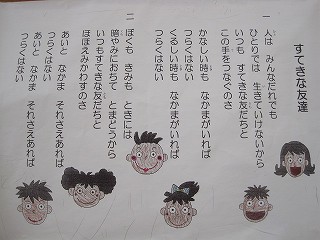 すてきな友達
一 人は みんなだれでも
ひとりでは 生きていけないから
いつも すてきな友だちと
この手をつなぐのさ
かなしい時も なかまがいれば
つらくはない
くるしい時も なかまがいれば
つらくはない
二 ぼくも きみも ときには
暗やみにおちて とまどうから
いつもすてきな友だちと
ほほえみかわすのさ
あいと なかま それさえあれば
つらくはない
あいと なかま それさえあれば
つらくはない